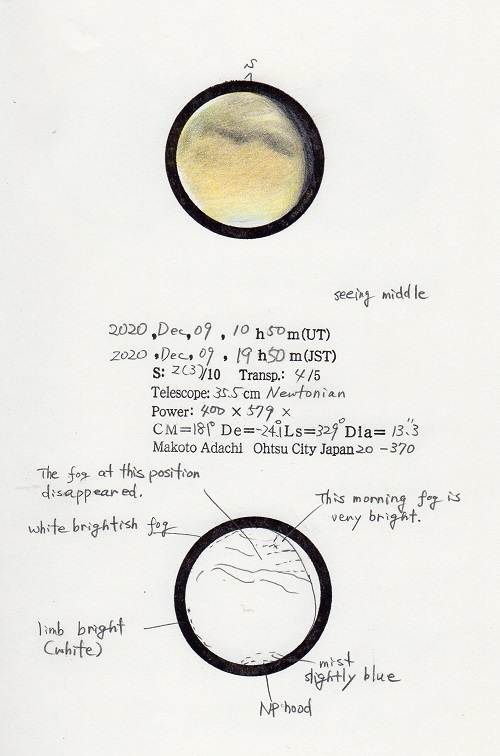 S
seeing middle
2020, Dec, 09, 10 h 50 m (UT)
2020, Dec, 09, 19 h 50 m (JST)
S: 2(3)/10 Transp.: 4/5
Telescope: 35.5 cm Newtonian
Power: 400 × 579 ×
CM=181° De=-24.1° Ls=329° Dia= 13".3
Makoto Adachi Ohtsu City Japan 20-370
The fog at this position
disappeared.
This morning fog is
very bright.
white brightish fog
limb bright
(white)
mist
slightly blue
NP hood